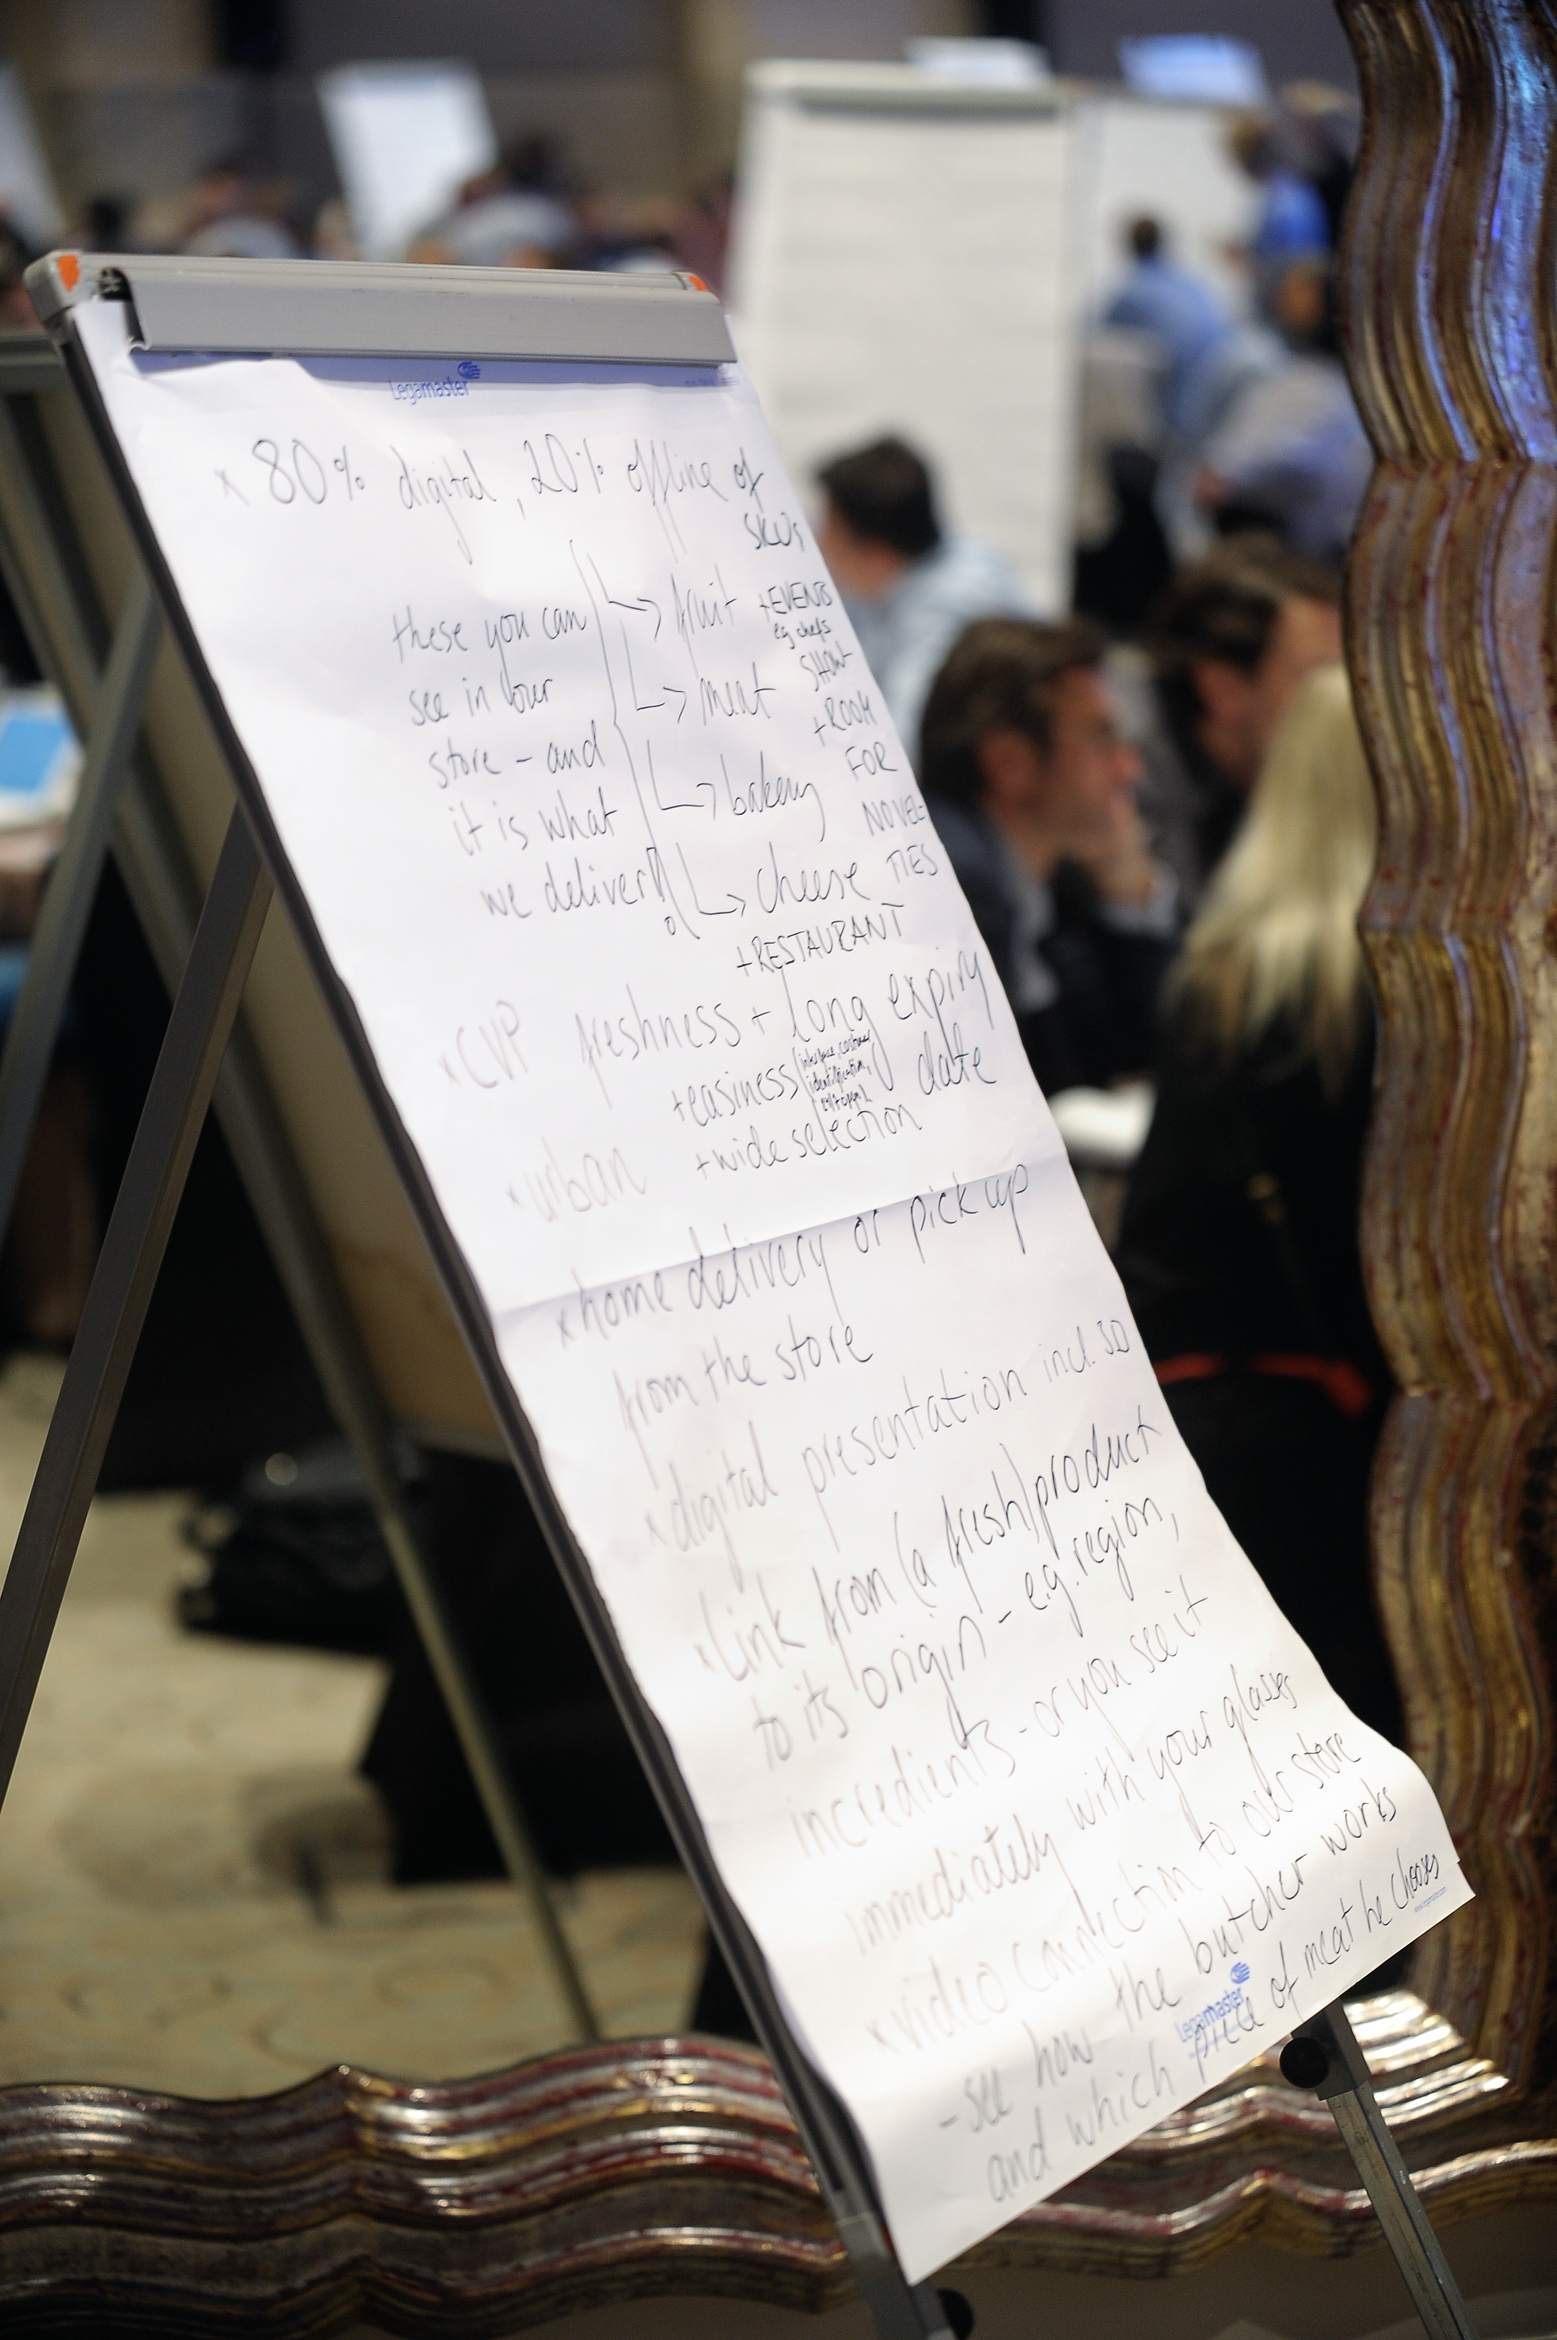 Legamaster
x 80% digital, 20% offline of
SKU's
these you can
see in our
store - and
it is what
we deliver!!
fruit
meat
bakery
cheese
+ EVENTS
eg chefs
SHOW
+ ROOM
FOR
NOVEL-
TIES
+ RESTAURANT
x CVP freshness + long expiry
date
+ easiness
identification,
+ wide selection
x urban
x home delivery or pick up
from the store
x digital presentation incl. 3D
x Link from (a fresh) product
to its origin - e.g. region,
incredients - or you see it
immediately with your glasses
x video connection to our store
- see how the butcher works
and which piece of meat he chooses
Legamaster